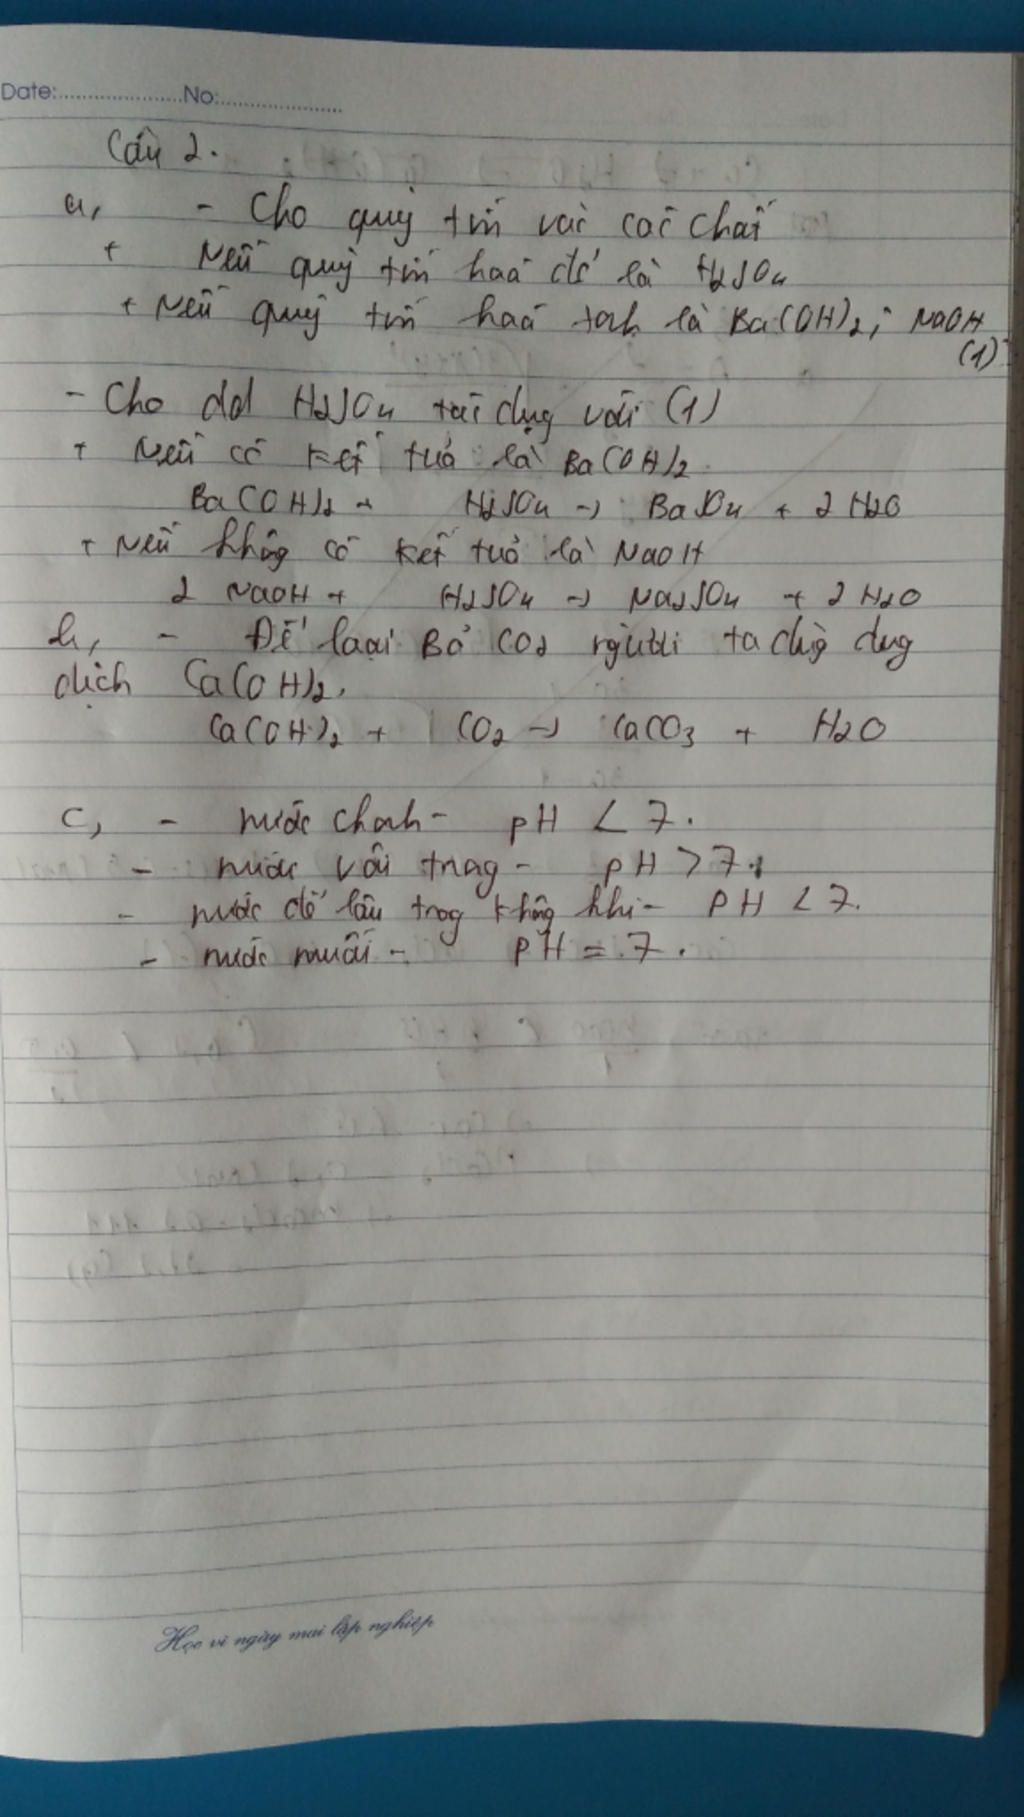 Date:.....................No:.....................
Câu 2.
a, - Cho quỳ tím vào các chất
+ Nếu quỳ tím hoá đỏ là H2SO4
+ Nếu quỳ tím hoá xanh là Ba(OH)2; NaOH
(1)
- Cho dd H2SO4 tác dụng với (1)
+ Nếu có kết tủa là Ba(OH)2.
Ba(OH)2 + H2SO4 → BaSO4 + 2 H2O
+ Nếu không có kết tủa là NaOH
2 NaOH + H2SO4 → Na2SO4 + 2 H2O
b, - Để loại Bỏ CO2 người ta dùng dung
dịch Ca(OH)2.
Ca(OH)2 + CO2 → CaCO3 + H2O
C, - nước chanh - pH < 7.
- nước vôi trong - pH > 7.
- nước để lâu trong không khí - PH < 7.
- nước muối - pH = 7.
Học vì ngày mai lập nghiệp